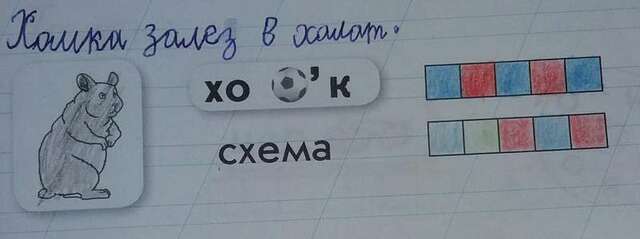 Хомка залез в халат.
хо ’ к
схема